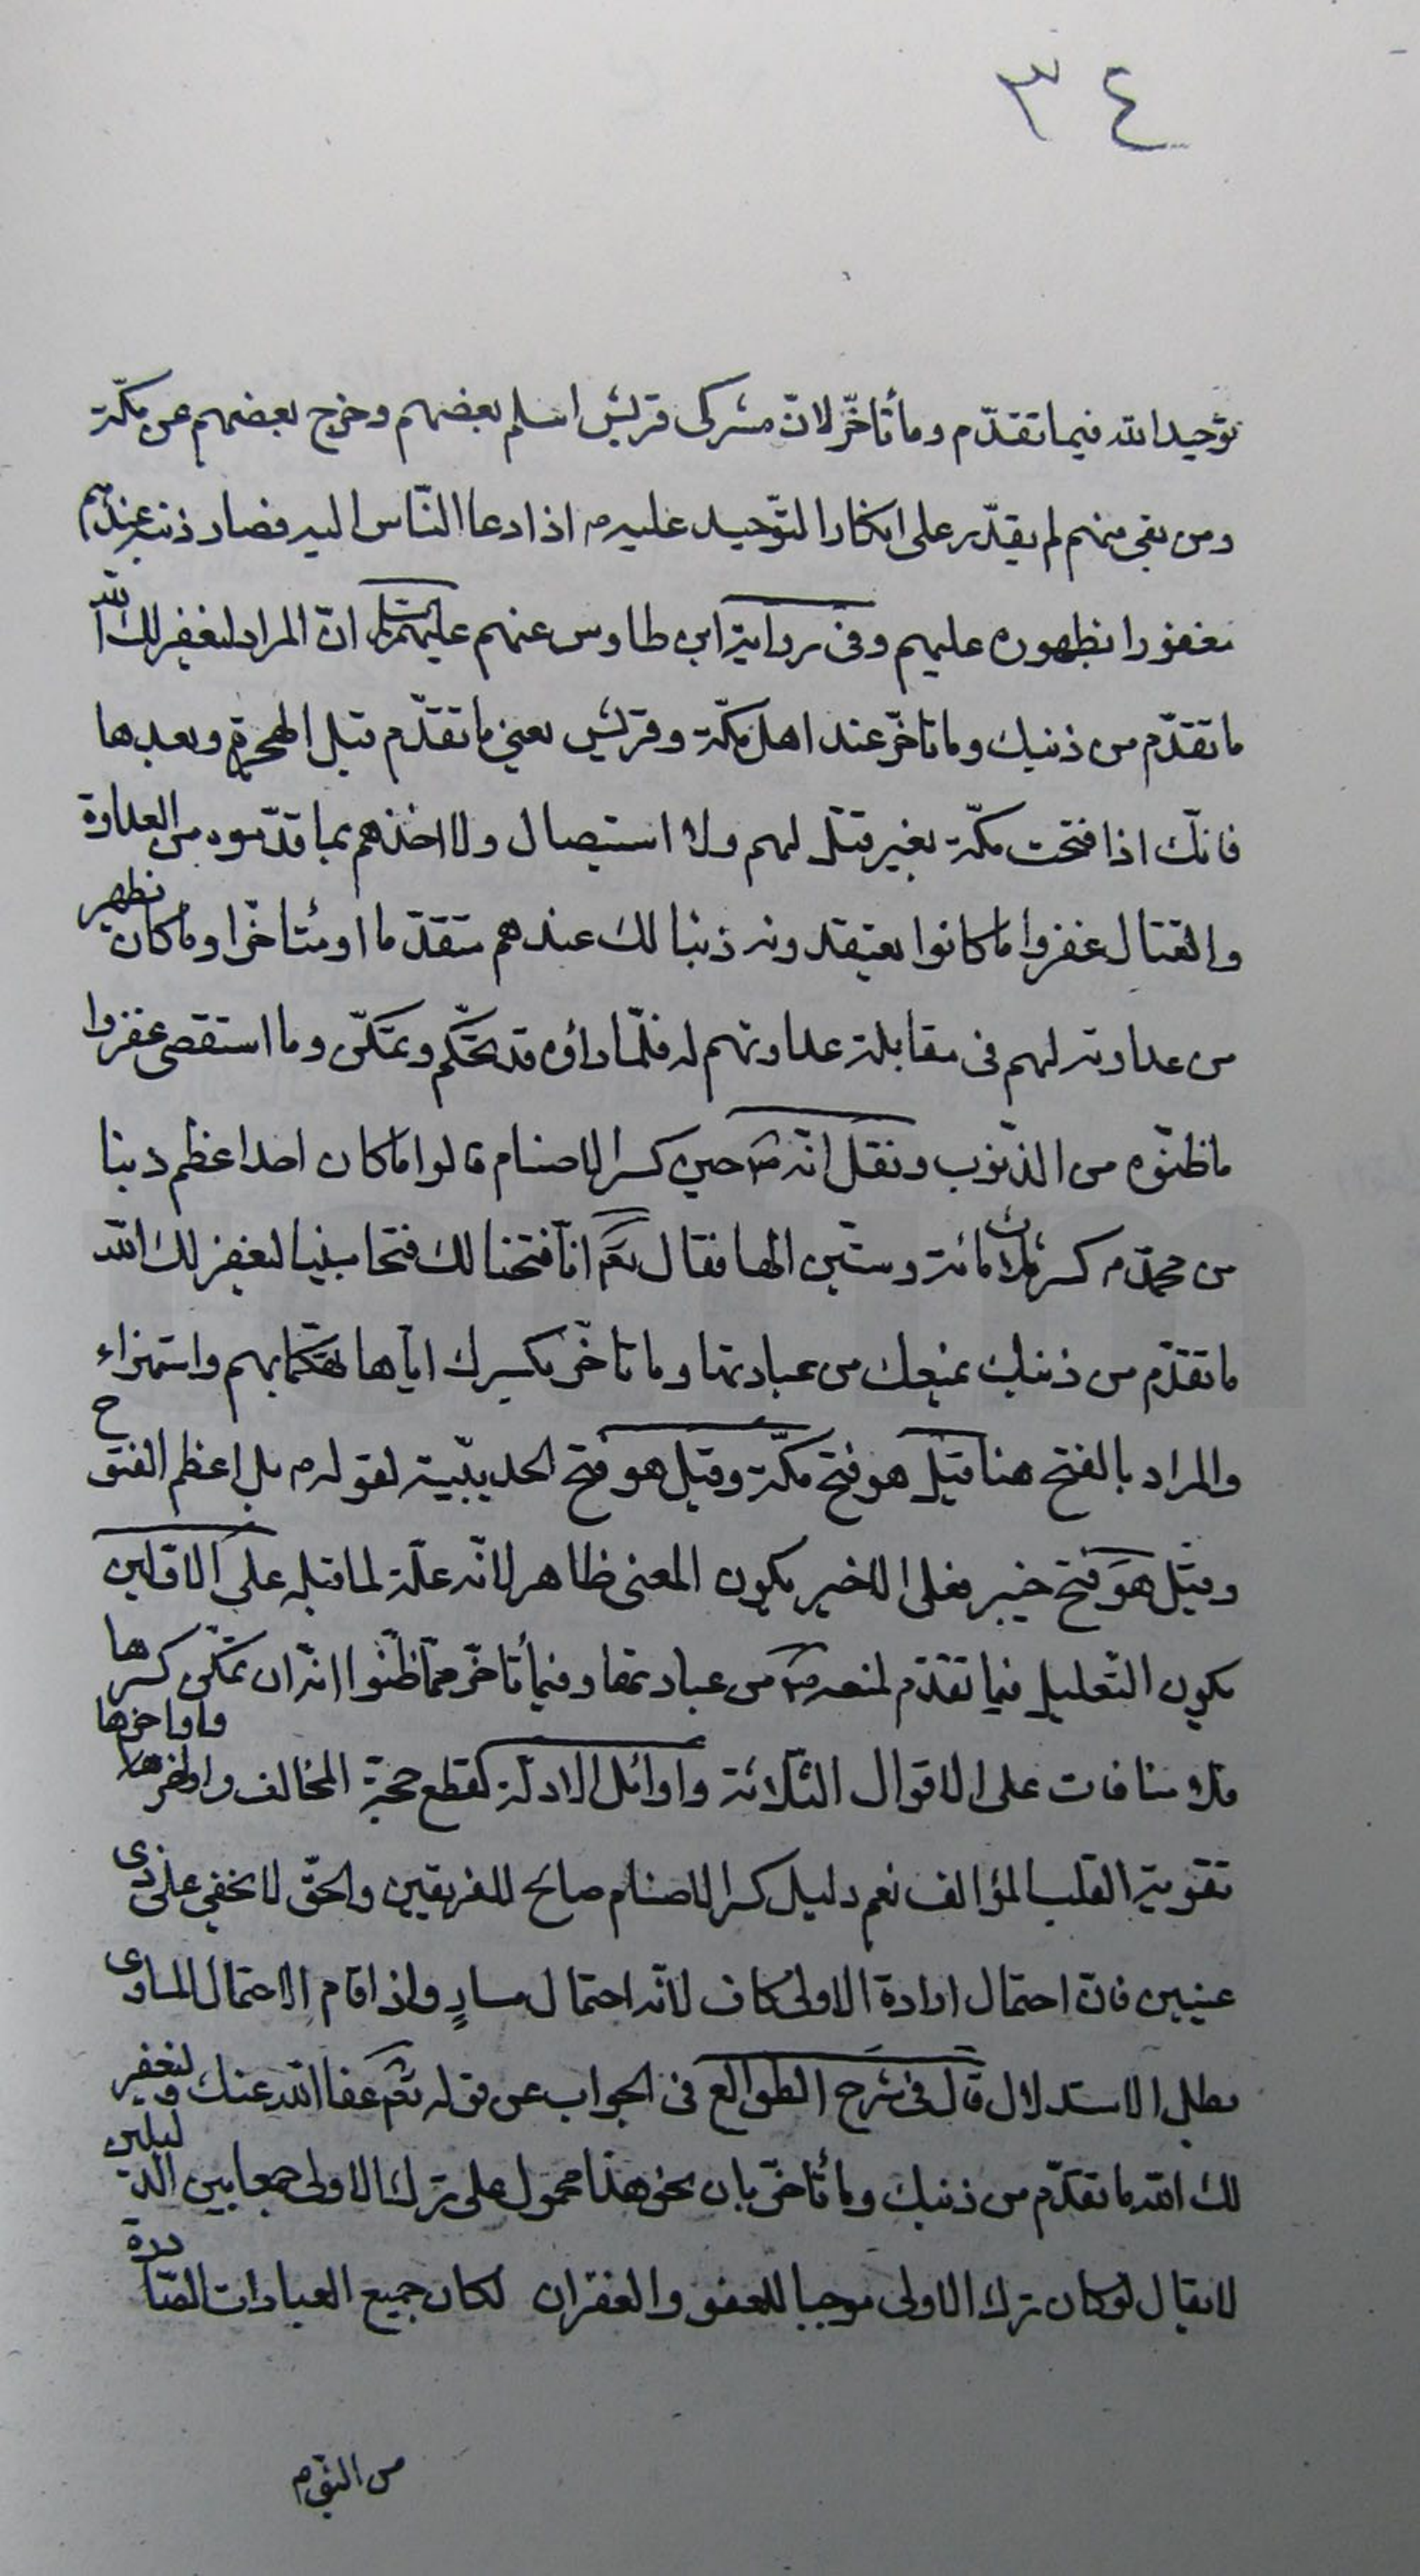 ٣٤
توحيد الله فيما تقدّم وما تأخّر لانّ مشركى قريش اسلم بعضهم وخرج بعضهم عن مكّة
ومن بقى منهم لم يقدّر على انكار التّوحيد عليه م اذا دعا النّاس اليه فصار ذنبه عندهم
مغفورا بظهوره عليهم وفى رواية ابن طاوس عنهم عليهم السلام انّ المراد ليغفر لك الله
ما تقدّم من ذنبك وما تاخّر عند اهل مكّة وقريش يعنى ما تقدّم قبل الهجرة وبعدها
فانّك اذا فتحت مكّة بغير قتل لهم ولا استيصال ولا اخذهم بما قدّموه من العداوة
والقتال غفروا ما كانوا يعتقدونه ذنبا لك عندهم متقدّما او متأخّرا وما كان تظهر
من عداوته لهم فى مقابلة عداوتهم له فلمّا رأوه قد تحكّم وتمكّن وما استقصى غفروا
ما ظنّوه من الذّنوب ونقل انّه ص حين كسر الاصنام قالوا ما كان احد اعظم ذنبا
من محمّد م كسر ثلاث مائة وستّين الها فقال تعم انّا فتحنا لك فتحا مبينا ليغفر لك الله
ما تقدّم من ذنبك بمنعك من عبادتها وما تاخّر بكسرك ايّاها تهكّما بهم واستهزاء
والمراد بالفتح هنا قيل هو فتح مكّة وقيل هو فتح الحديبيّة لقوله م بل اعظم الفتوح
وقيل هو فتح خيبر فعلى الاخير يكون المعنى ظاهر لانّه علّة لما قبله على الاوّلين
يكون التّعليل فيما تقدّم لمنعه ص من عبادتها وفيما تأخّر ممّا ظنّوا انّه ان تمكّن كسرها
فلا منافات على الاقوال الثّلاثة واوائل الادلّة كقطع حجة المخالف واواخرها
تقوية القلب المؤالف نعم دليل كسر الاصنام صالح للفريقين والحقّ لا يخفى على ذى
عينين فانّ احتمال ارادة الاولى كاف لانّه احتمال مساوٍ واذا قام الاحتمال المساوى
بطل الاستدلال قال فى شرح الطوالع فى الجواب عن قوله تعم عفا الله عنك وليغفر
لك الله ما تقدّم من ذنبك وما تأخّر بان نحو هذا محمول على ترك الاولى جمعا بين الدّليلين
لا يقال لو كان ترك الاولى موجبا للعفو والغفران لكان جميع العبادات الصّادرة
من النّبى م